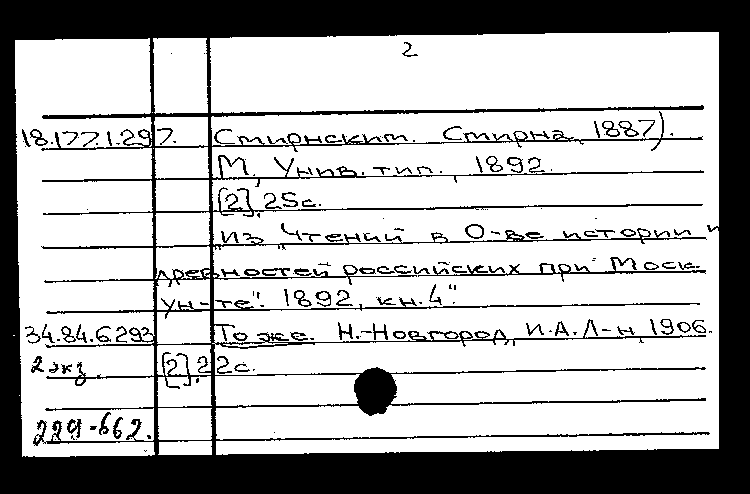 2
18.177.1.297. Смирнским. Смирна, 1887).
М., Унив. тип., 1892.
[2], 25с.
„Из „Чтений в О-ве истории и
древностей российских при Моск.
ун-те". 1892, кн. 4".
34.84.6.293 То же. Н.-Новгород, И.А.Л-н, 1906.
2 экз. [2], 22с.
229-662.